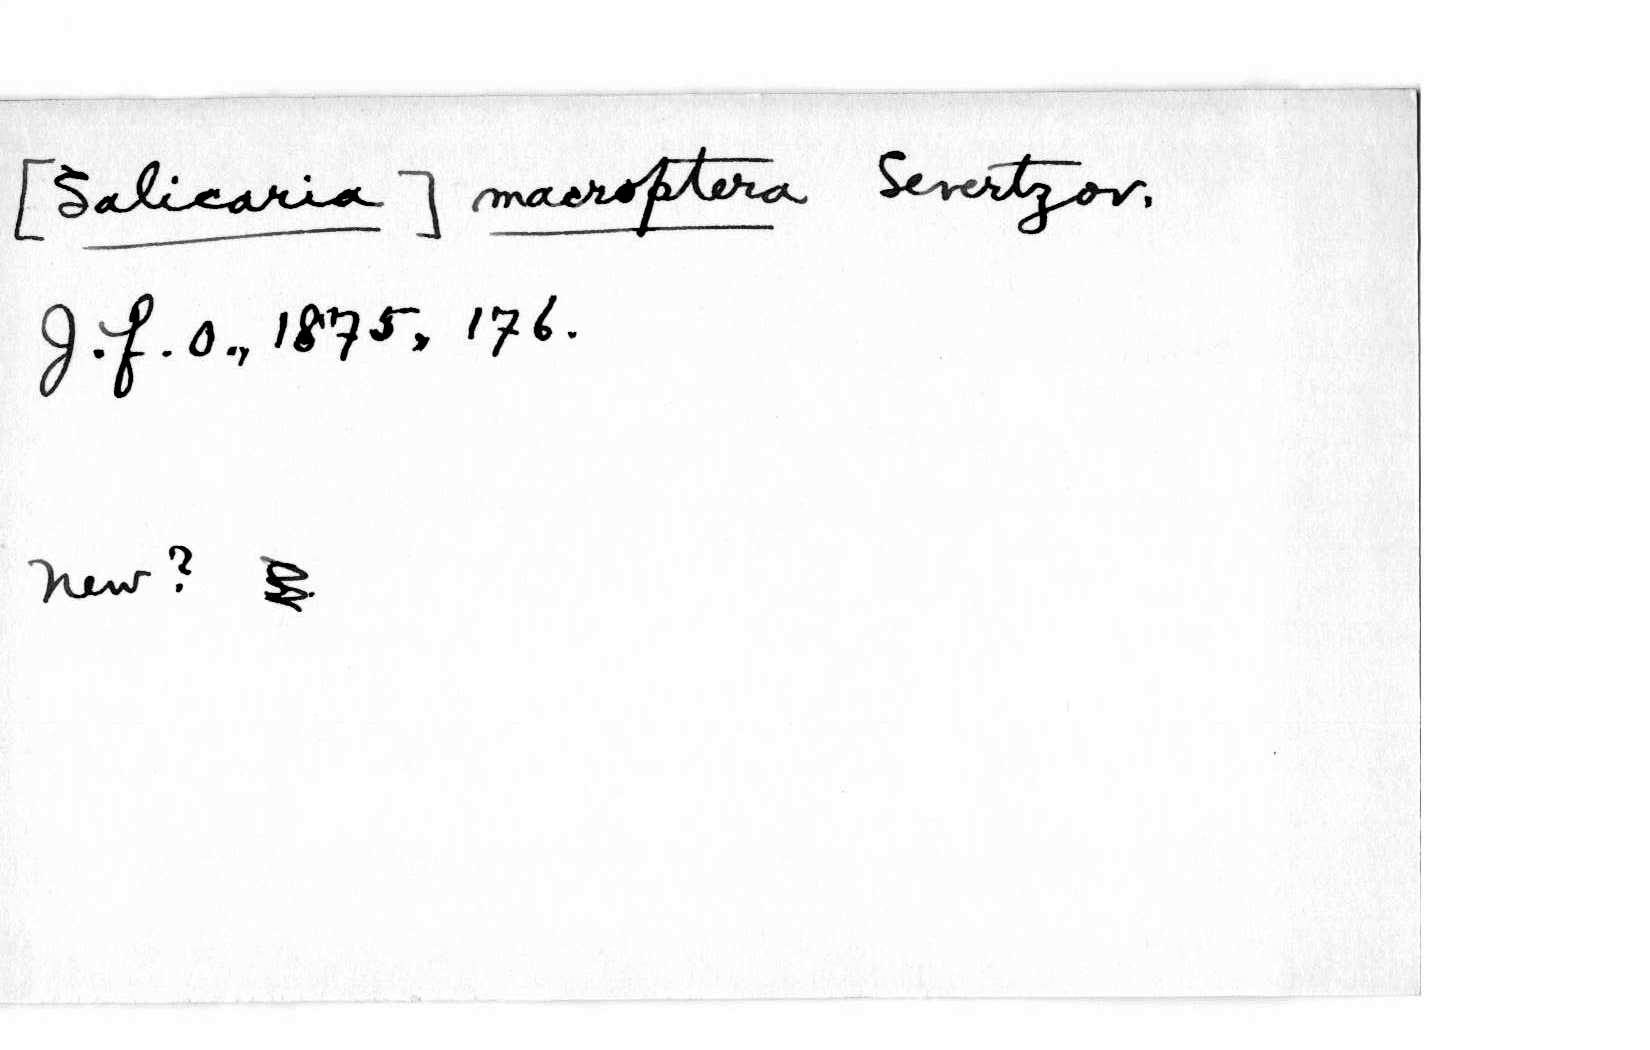 [Salicaria] macroptera Severtzov.
J.f.O., 1875, 176.
New?